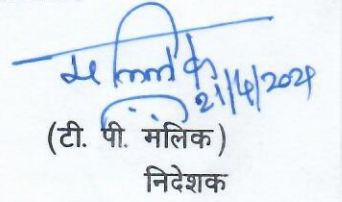 मलिक
21/4/2021
(टी. पी. मलिक)
निदेशक